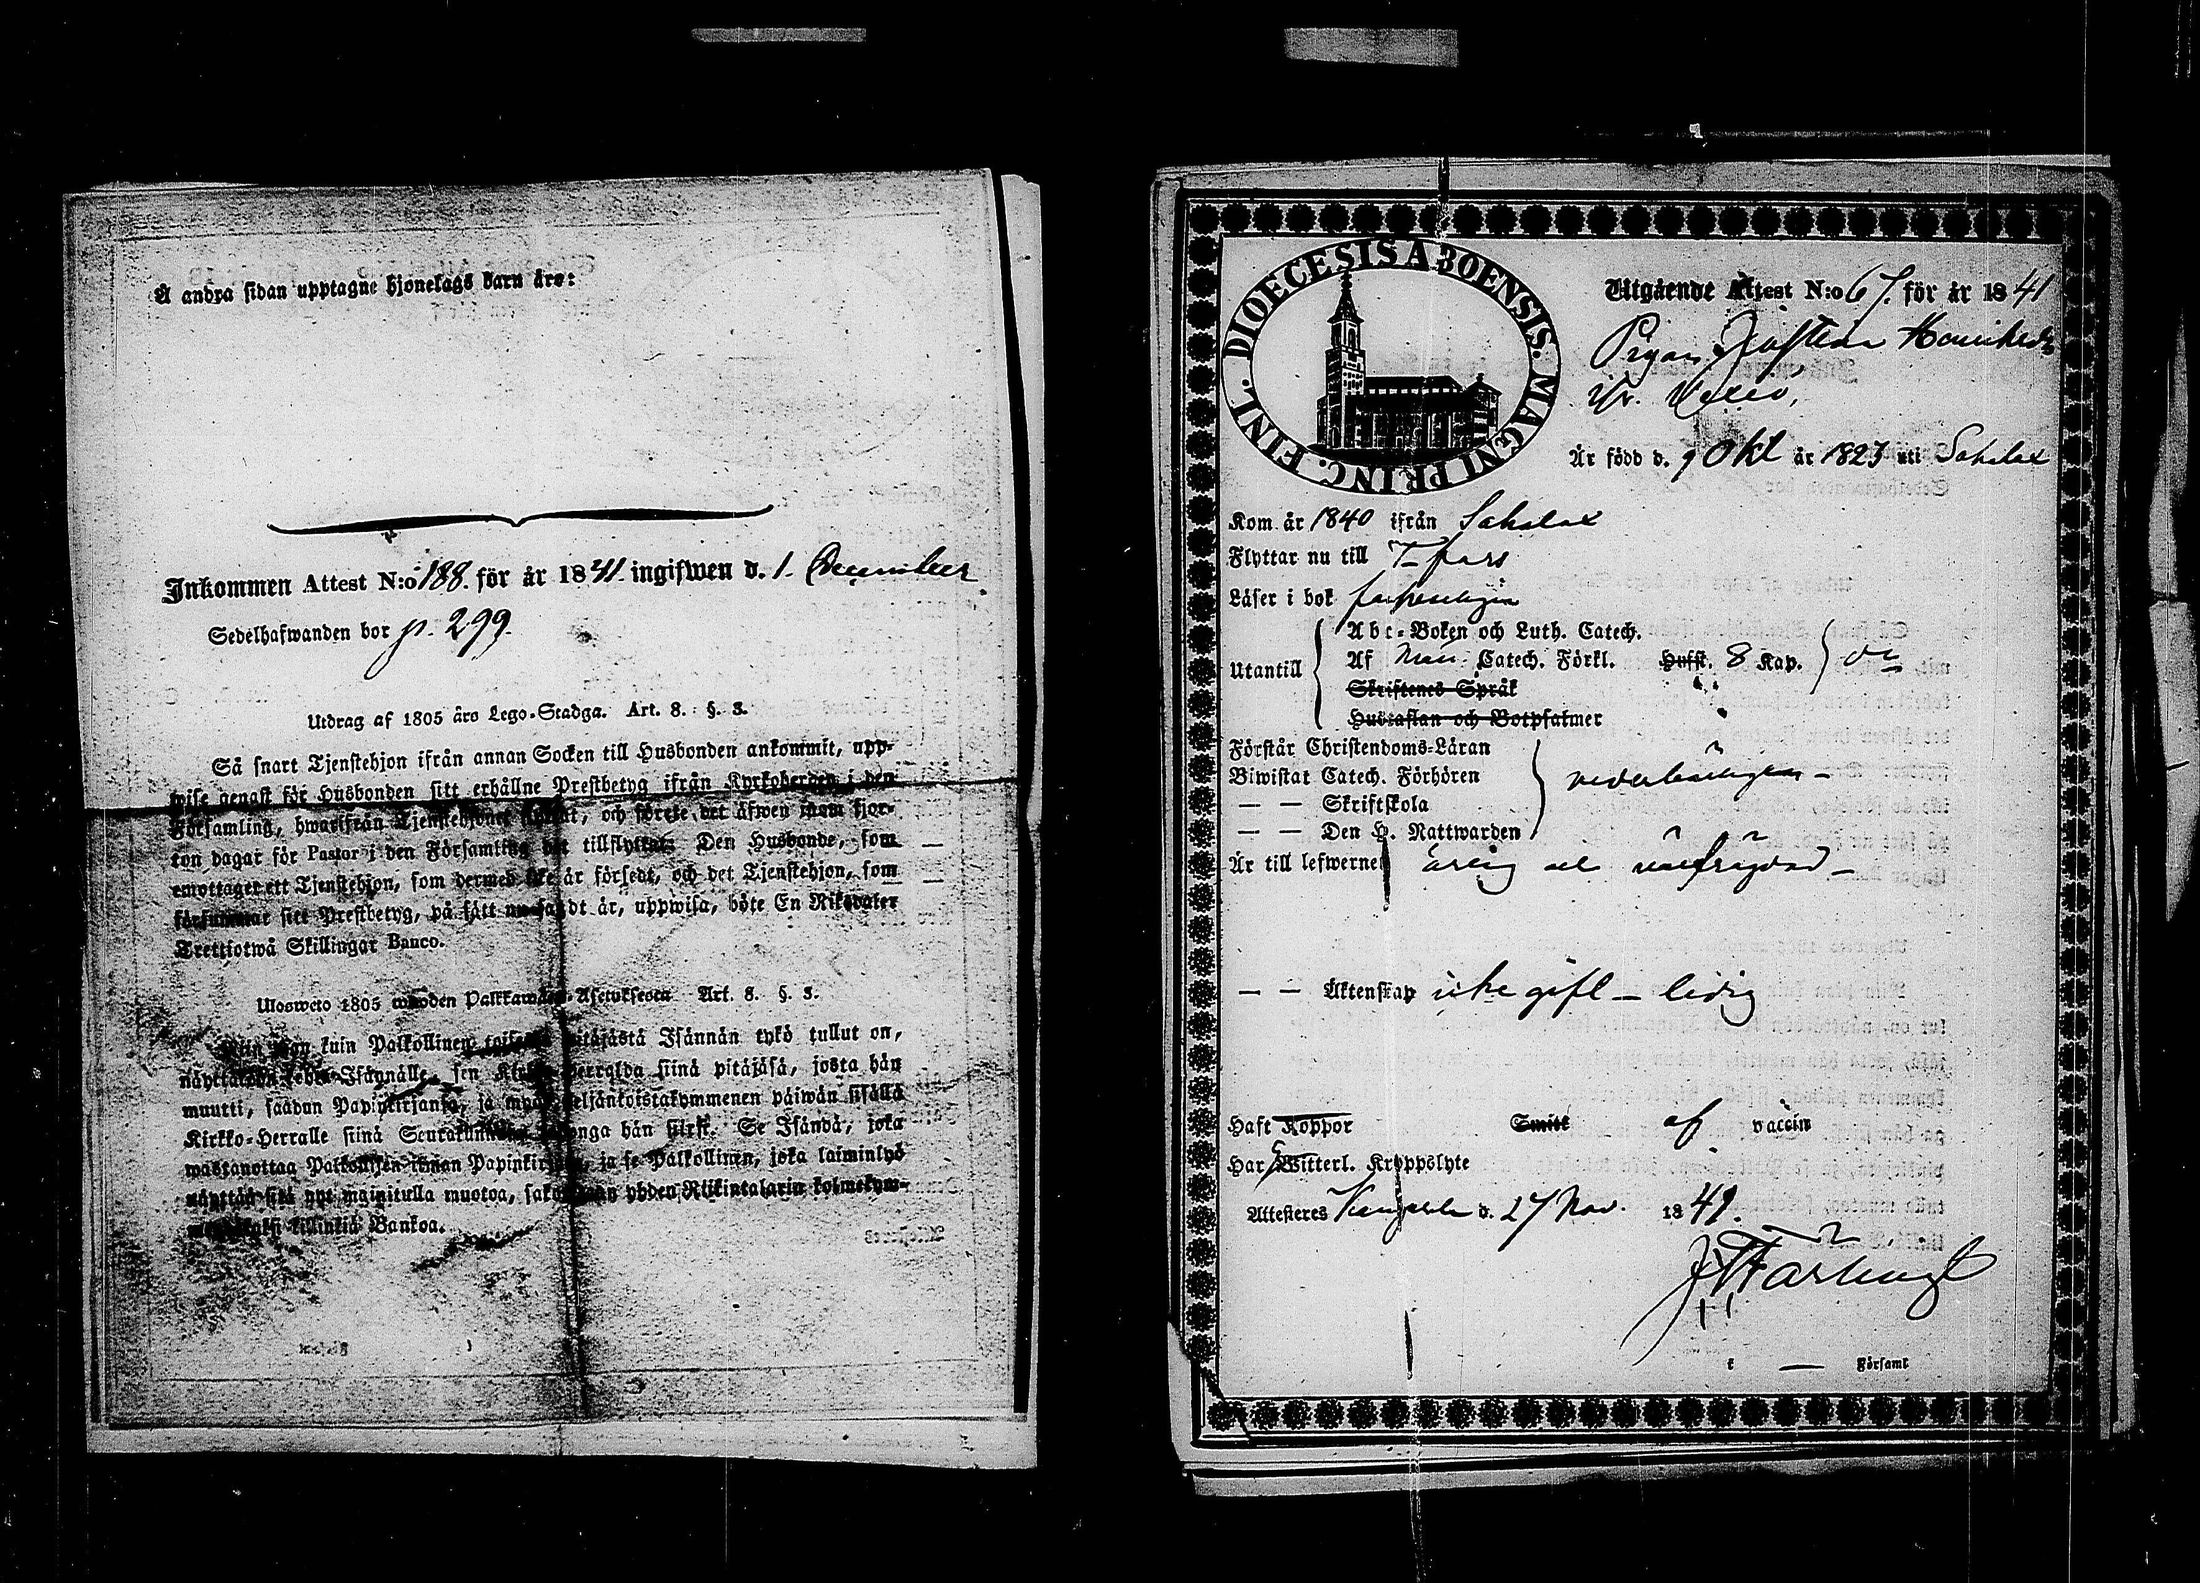 Å andra sidan upptagne hjonelags barn äro:
Inkommen Attest N:o 188. för år 1841. ingifwen d. 1. December
Sedelhafwanden bor p. 299.
Utdrag af 1805 års Lego-Stadga. Art. 8. §. 3.
Så snart Tjenstehjon ifrån annan Socken till Husbonden ankommit, upp-
wise genast för Husbonden sitt erhållne Prestbetyg ifrån Kyrkoherden i den
Församling, hwarifrån Tjenstehjonet, och förete det äfwen inom fjor-
ton dagar för Pastor i den Församling det tillflyttat. Den Husbonde, som
emottager ett Tjenstehjon, som dermed icke är försedt, och det Tjenstehjon, som
försummar sitt Prestbetyg, på sätt nu sagdt är, uppwisa, böte En Riksdaler
Trettiotwå Skillingar Banco.
Ulosweto 1805 wuoden Palkkawäen-Asetuksesta Art. 8. §. 3.
Niin pian kuin Palkollinen toisesta pitäjästä Isännän tykö tullut on,
näyttäkön Isännälle, sen Kirkko-Herralda siinä pitäjäsä, josta hän
muutti, saadun Papinkirjansa, ja myös neljäntoistakymmenen päiwän sisällä
Kirkko-Herralle siinä Seurakunnasa, hän siirsi. Se Isändä, joka
wastanottaa Palkollisen ilman Papinkirjata, ja se Palkollinen, joka laiminlyö
näyttää sitä nyt mainitulla muotoa, sakoitetaan yhden Riikintalarin kolmekym-
killinkiä Bankoa.
DIOECESIS ABOENSIS. MAGNI PRINC. FINL.
Utgående Attest N:o 67. för år 1841
Pigan Henriksdr
fr.
Är född d. 9 Okt år 1823 uti Sahalax
Kom år 1840 ifrån Sahalax
Flyttar nu till T-fors
Läser i bok
Utantill
Abc-Boken och Luth. Catech.
Af Catech. Förkl. Hufst. 8 Kap.
Skriftenes Språk
Hustaflan och Botpsalmer
Förstår Christendoms-Läran
Biwistat Catech. Förhören
— — Skriftskola
— — Den H. Nattwarden
nederbörligen
Är till lefwernet ärlig och välfrägdad
— — Äktenskap icke gift — ledig
Haft Koppor Smitt af vaccin
Har Witterl. Kroppslyte
Attesteres Kangasala d. 27 Nov. 1841.
i — Församl